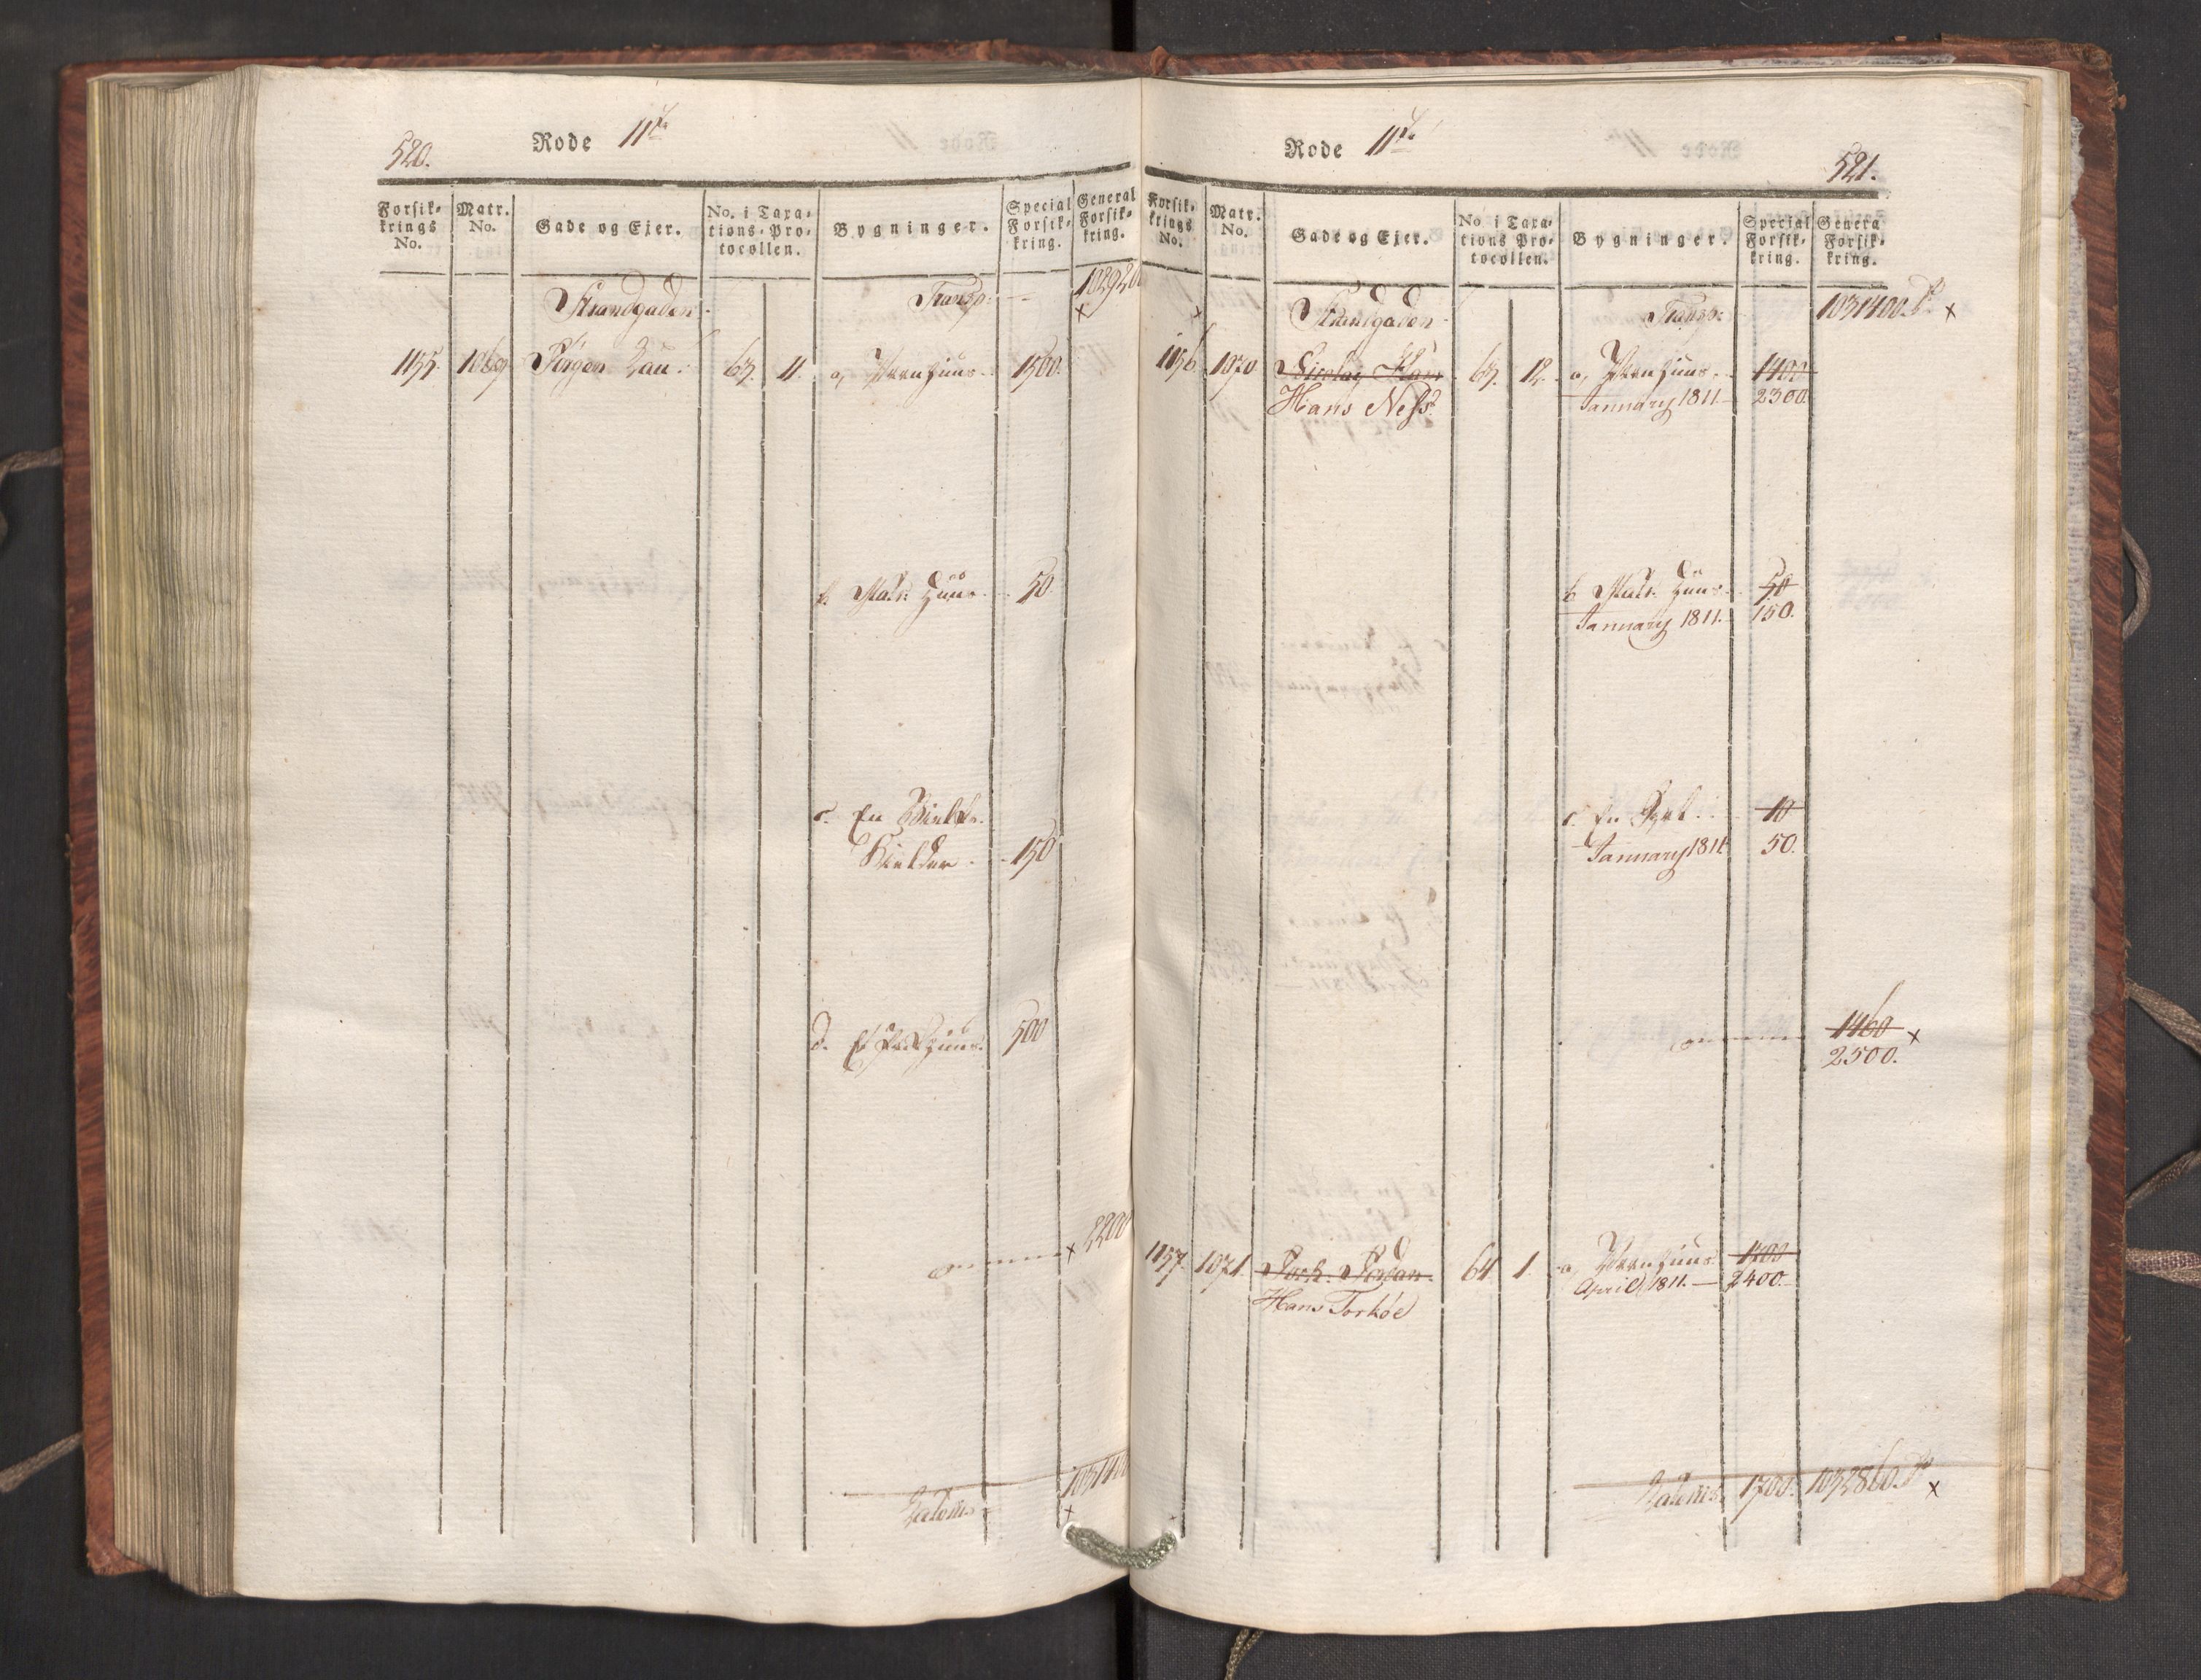 520.
Rode 11te
Forsik-
krings
No.
Matr.
No.
Gade og Ejer.
No. i Taxa-
tions-Pro-
tocollen.
Bygninger.
Special
Forsik-
kring.
General
Forsik-
kring.
Strandgaden
Transp:
1029200
1155. 1069 Jørgen Lau: 63. 11. a, Vaanhuus. 1500.
b. Mask: Huus. 50.
c. En Bielke
Kielder. 150
d. Et Huus. 500
2200
Lateris
1031400
Rode 11te
521.
Forsik-
krings
No.
Matr.
No.
Gade og Ejer.
No i Taxa-
tions Pro-
tocollen.
Bygninger.
Special
Forsik-
kring.
Genera
Forsik-
kring.
Strandgaden
Transp:
1031400.
1156 1070 Nicolay 63. 12. a, Vaanhuus. 1400
Hans Ness. January 1811. 2300
b Mask: Huus 50
January 1811. 150.
c. En 10
January 1811 50.
1460
2500.
1157. 1071. Jordan. 64 1. a, Vaanhuus 1700
Hans Torkøe April 1811. 2400.
Lateris. 1700. 1032860.